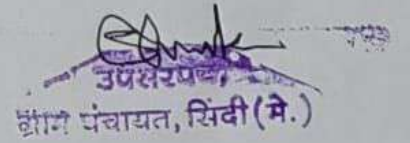 उपसरपंच,
ग्राम पंचायत, सिंदी (मे.)